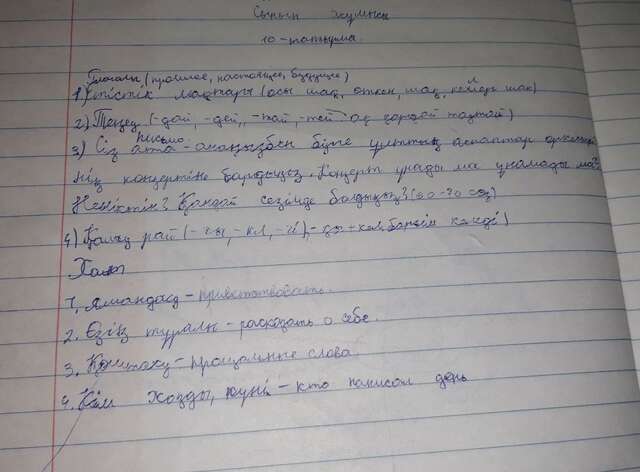 Сынып жұмысы
10-тапсырма.
Глаголы (прошлое, настоящее, будущее)
1) Етістік шақтары (осы шақ, өткен шақ, келер шақ)
2) Теңеу (-дай, -дей, -тай, -тей ақ қардай таттай)
письмо
3) Сіз ата-анаңызбен бірге ұлттық аспаптар оркестрі
нің концертіне бардыңыз. Концерт ұнады ма ұнамады ма?
Неліктен? Қандай сезімде болдыңыз? (60-70 сөз)
4) Қалау рай (-ғы, -кі, -гі)
Хат
1. Амандасу - приветствовать.
2. Өзің туралы - рассказать о себе.
3. Қоштасу - прощальные слова.
4. Кім жазды, күні - кто написал день